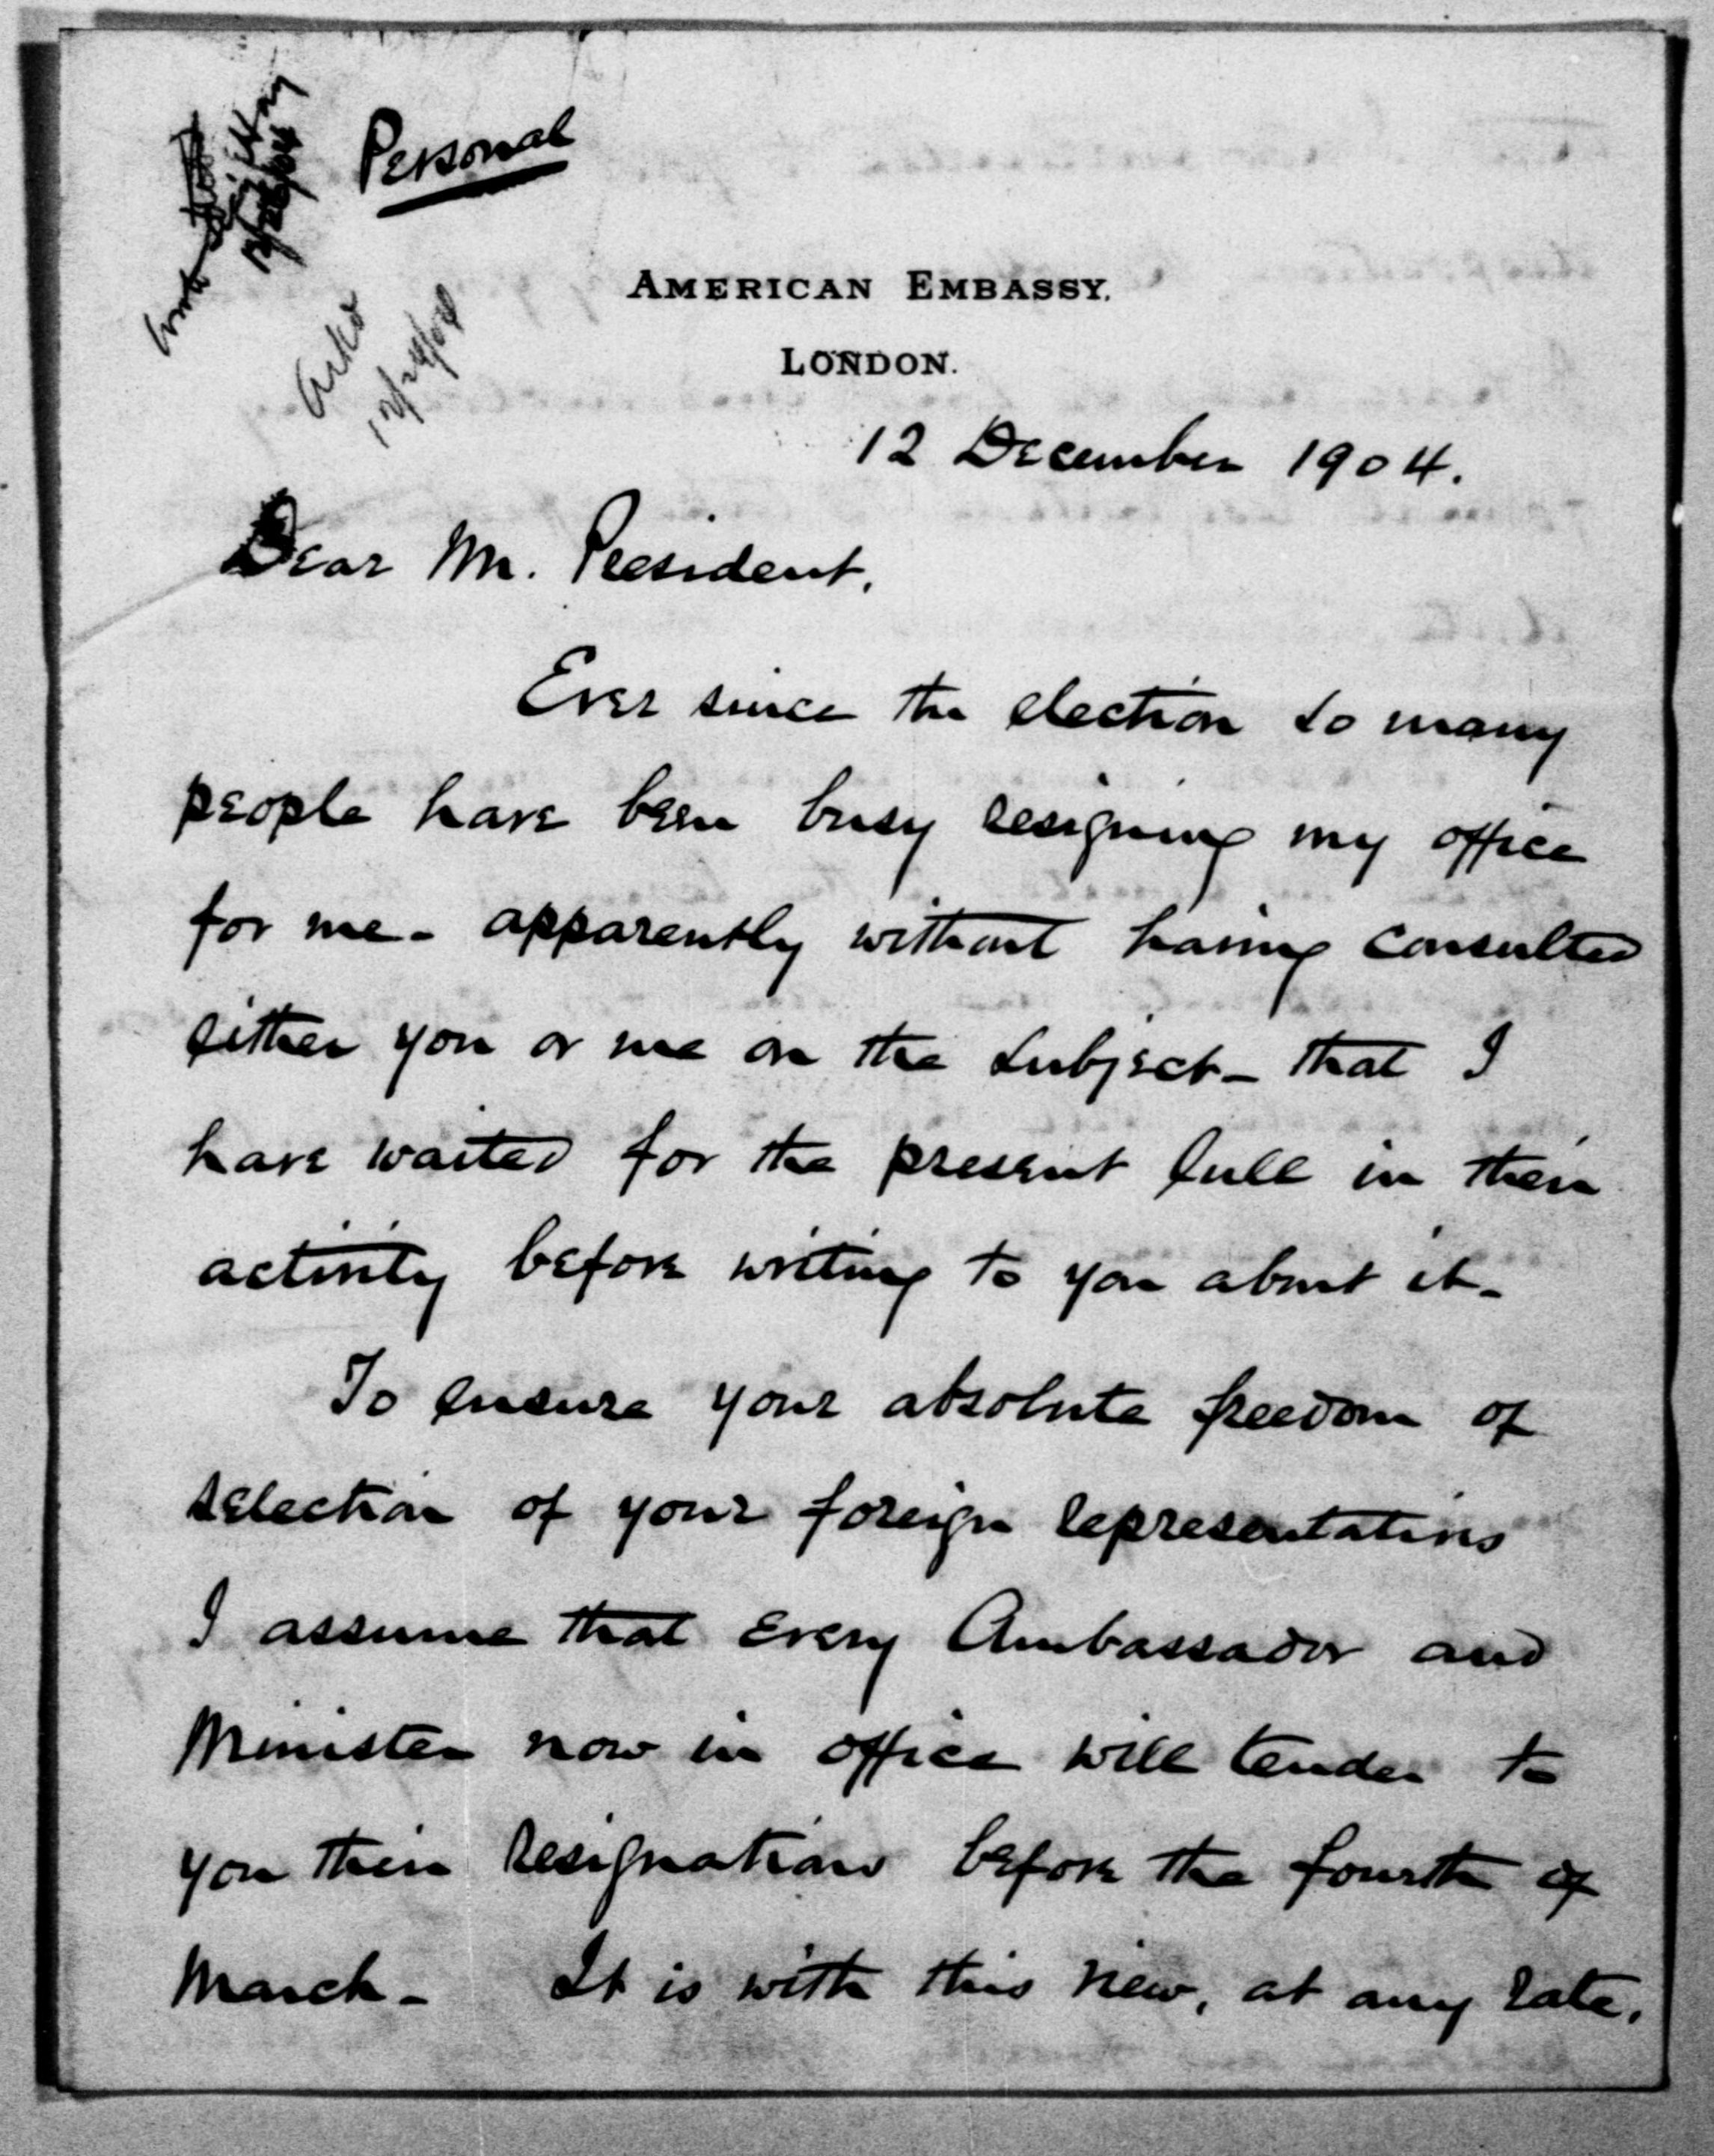 Personal
Ackd
12/24/04
AMERICAN EMBASSY.
LONDON.
12 December 1904.
Dear Mr. President,
Ever since the election so many
people have been busy resigning my office
for me - apparently without having consulted
either you or me on the subject - that I
have waited for the present lull in their
activity before writing to you about it -
To ensure your absolute freedom of
selection of your foreign representatives
I assume that every Ambassador and
Minister now in office will tender to
you their resignations before the fourth of
March - It is with this view, at any rate,